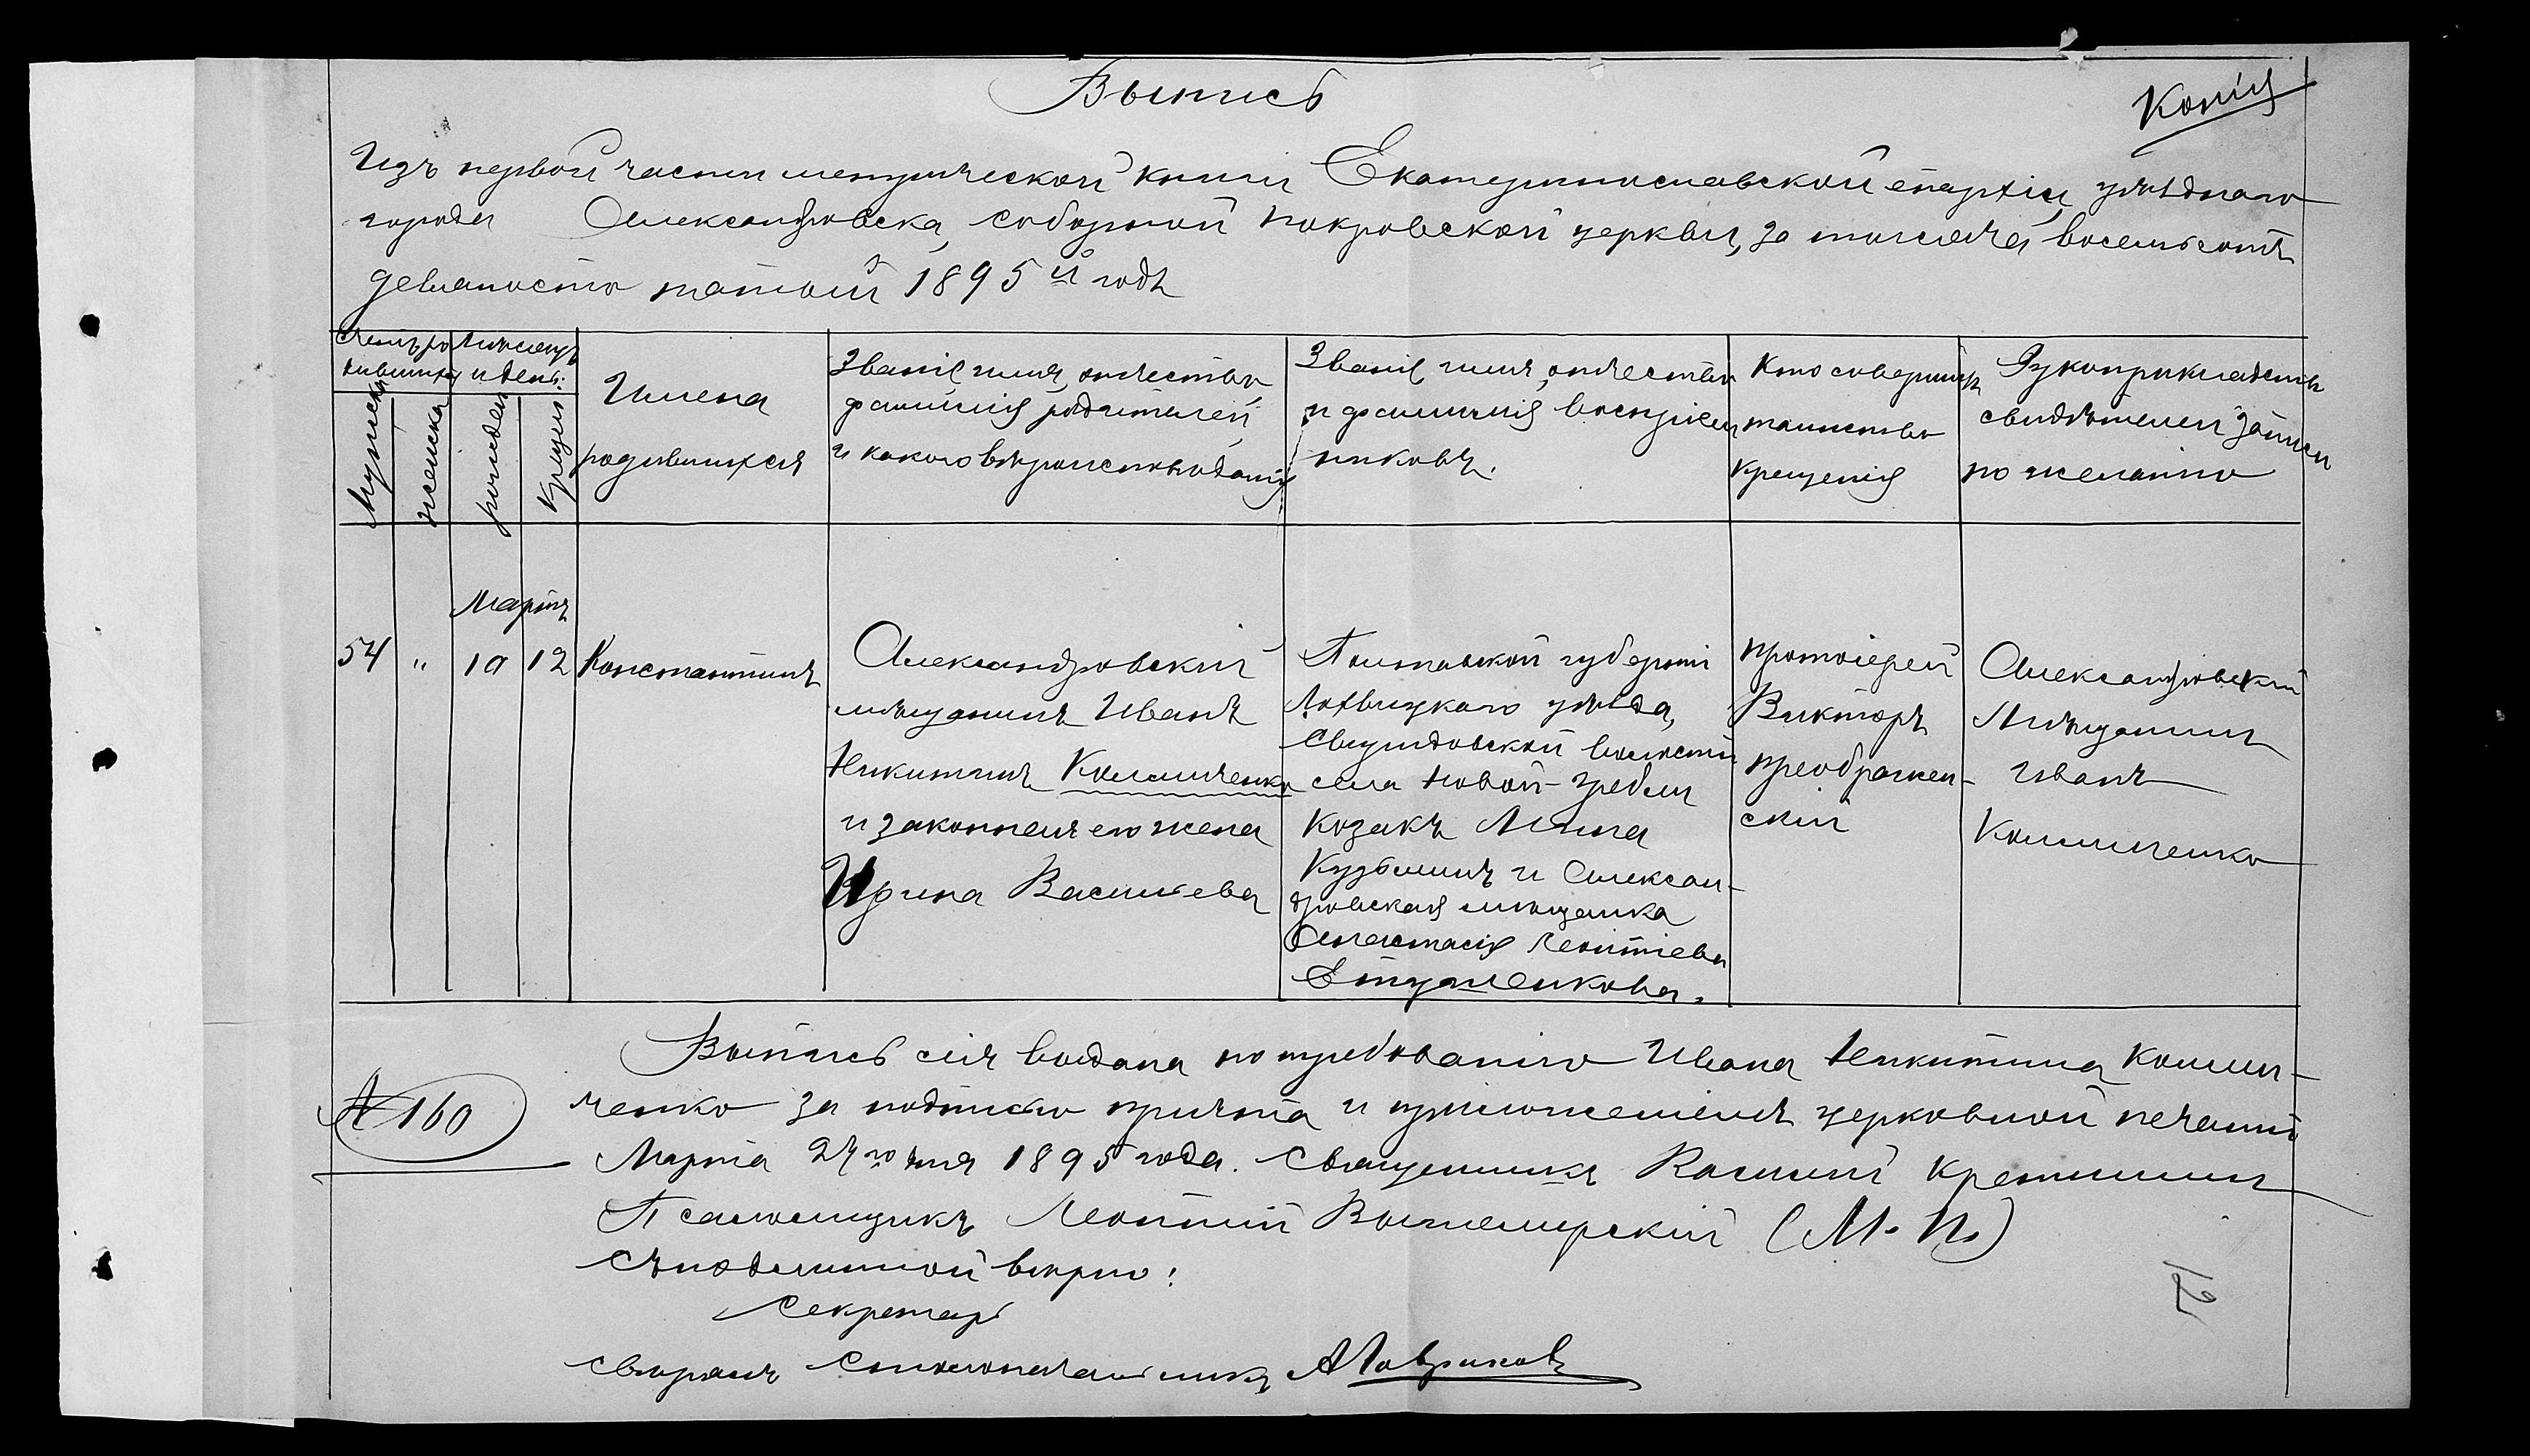 Выпись
Копія
Изъ первой части метрической книги Екатеринославской епархіи, уѣзднаго
города Александровска, соборной покровской церкви, за тысяча восемьсотъ
девяносто пятый 1895й годъ
Счетъ ро
дившихся
Мѣсяцъ
и день:
Мужеска
женска
рожденія
Крещенія
Имена
родившихся
Званіе, имя, отчество
фамилія родителей
и какого вѣроисповѣданія
Званіе, имя, отчество
и фамилія воспріем
никовъ.
Кто совершилъ
таинство
крещенія
Рукоприкладство
свидѣтелей записи
по желанію
Мартъ
54 " 10 12 Константинъ
Александровскій
мѣщанинъ Иванъ
Никитинъ Колиниченко
и законная его жена
Ирина Васильева
Полтавской губерніи
Лохвицкаго уѣзда,
волости
села Новой-гребли
Козакъ
Кузьминъ и Алексан-
дровская мѣщанка
Анастасія Леонтіева
протоіерей
Викторъ
преображен-
скій
Александровскій
Мѣщанинъ
Иванъ
Выпись сія выдана по требованію Ивана Никитина
ченко за подписью причта и приложеніемъ церковной печати
Марта 24го дня 1895 года. Священникъ
№ 160
Псаломщикъ Леонтій (М. П.)
Съ подлинной вѣрно:
Секретарь
Свѣрялъ Столоначальникъ